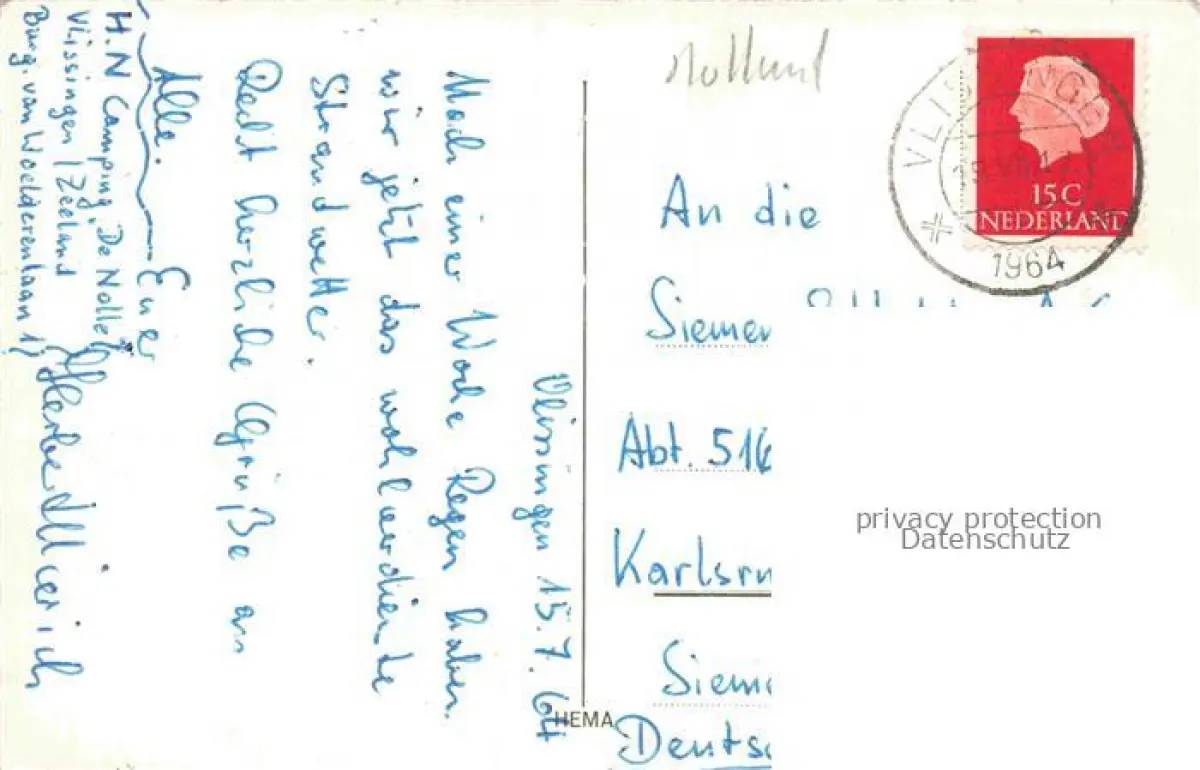 Vlissingen 15.7.64
Nach einer Woche Regen haben
wir jetzt das wohlverdiente
Strandwetter.
Recht herzliche Grüße an
Alle.
Euer
H.N Camping "De Nolle"
Vlissingen / Zeeland
Burg. van Woelderenlaan 1
Holland
An die
Siemen
Abt. 516
Karlsru
Sieme
Deutsc
HEMA
15 C
NEDERLAND
VLISSINGEN
1964
privacy protection
Datenschutz